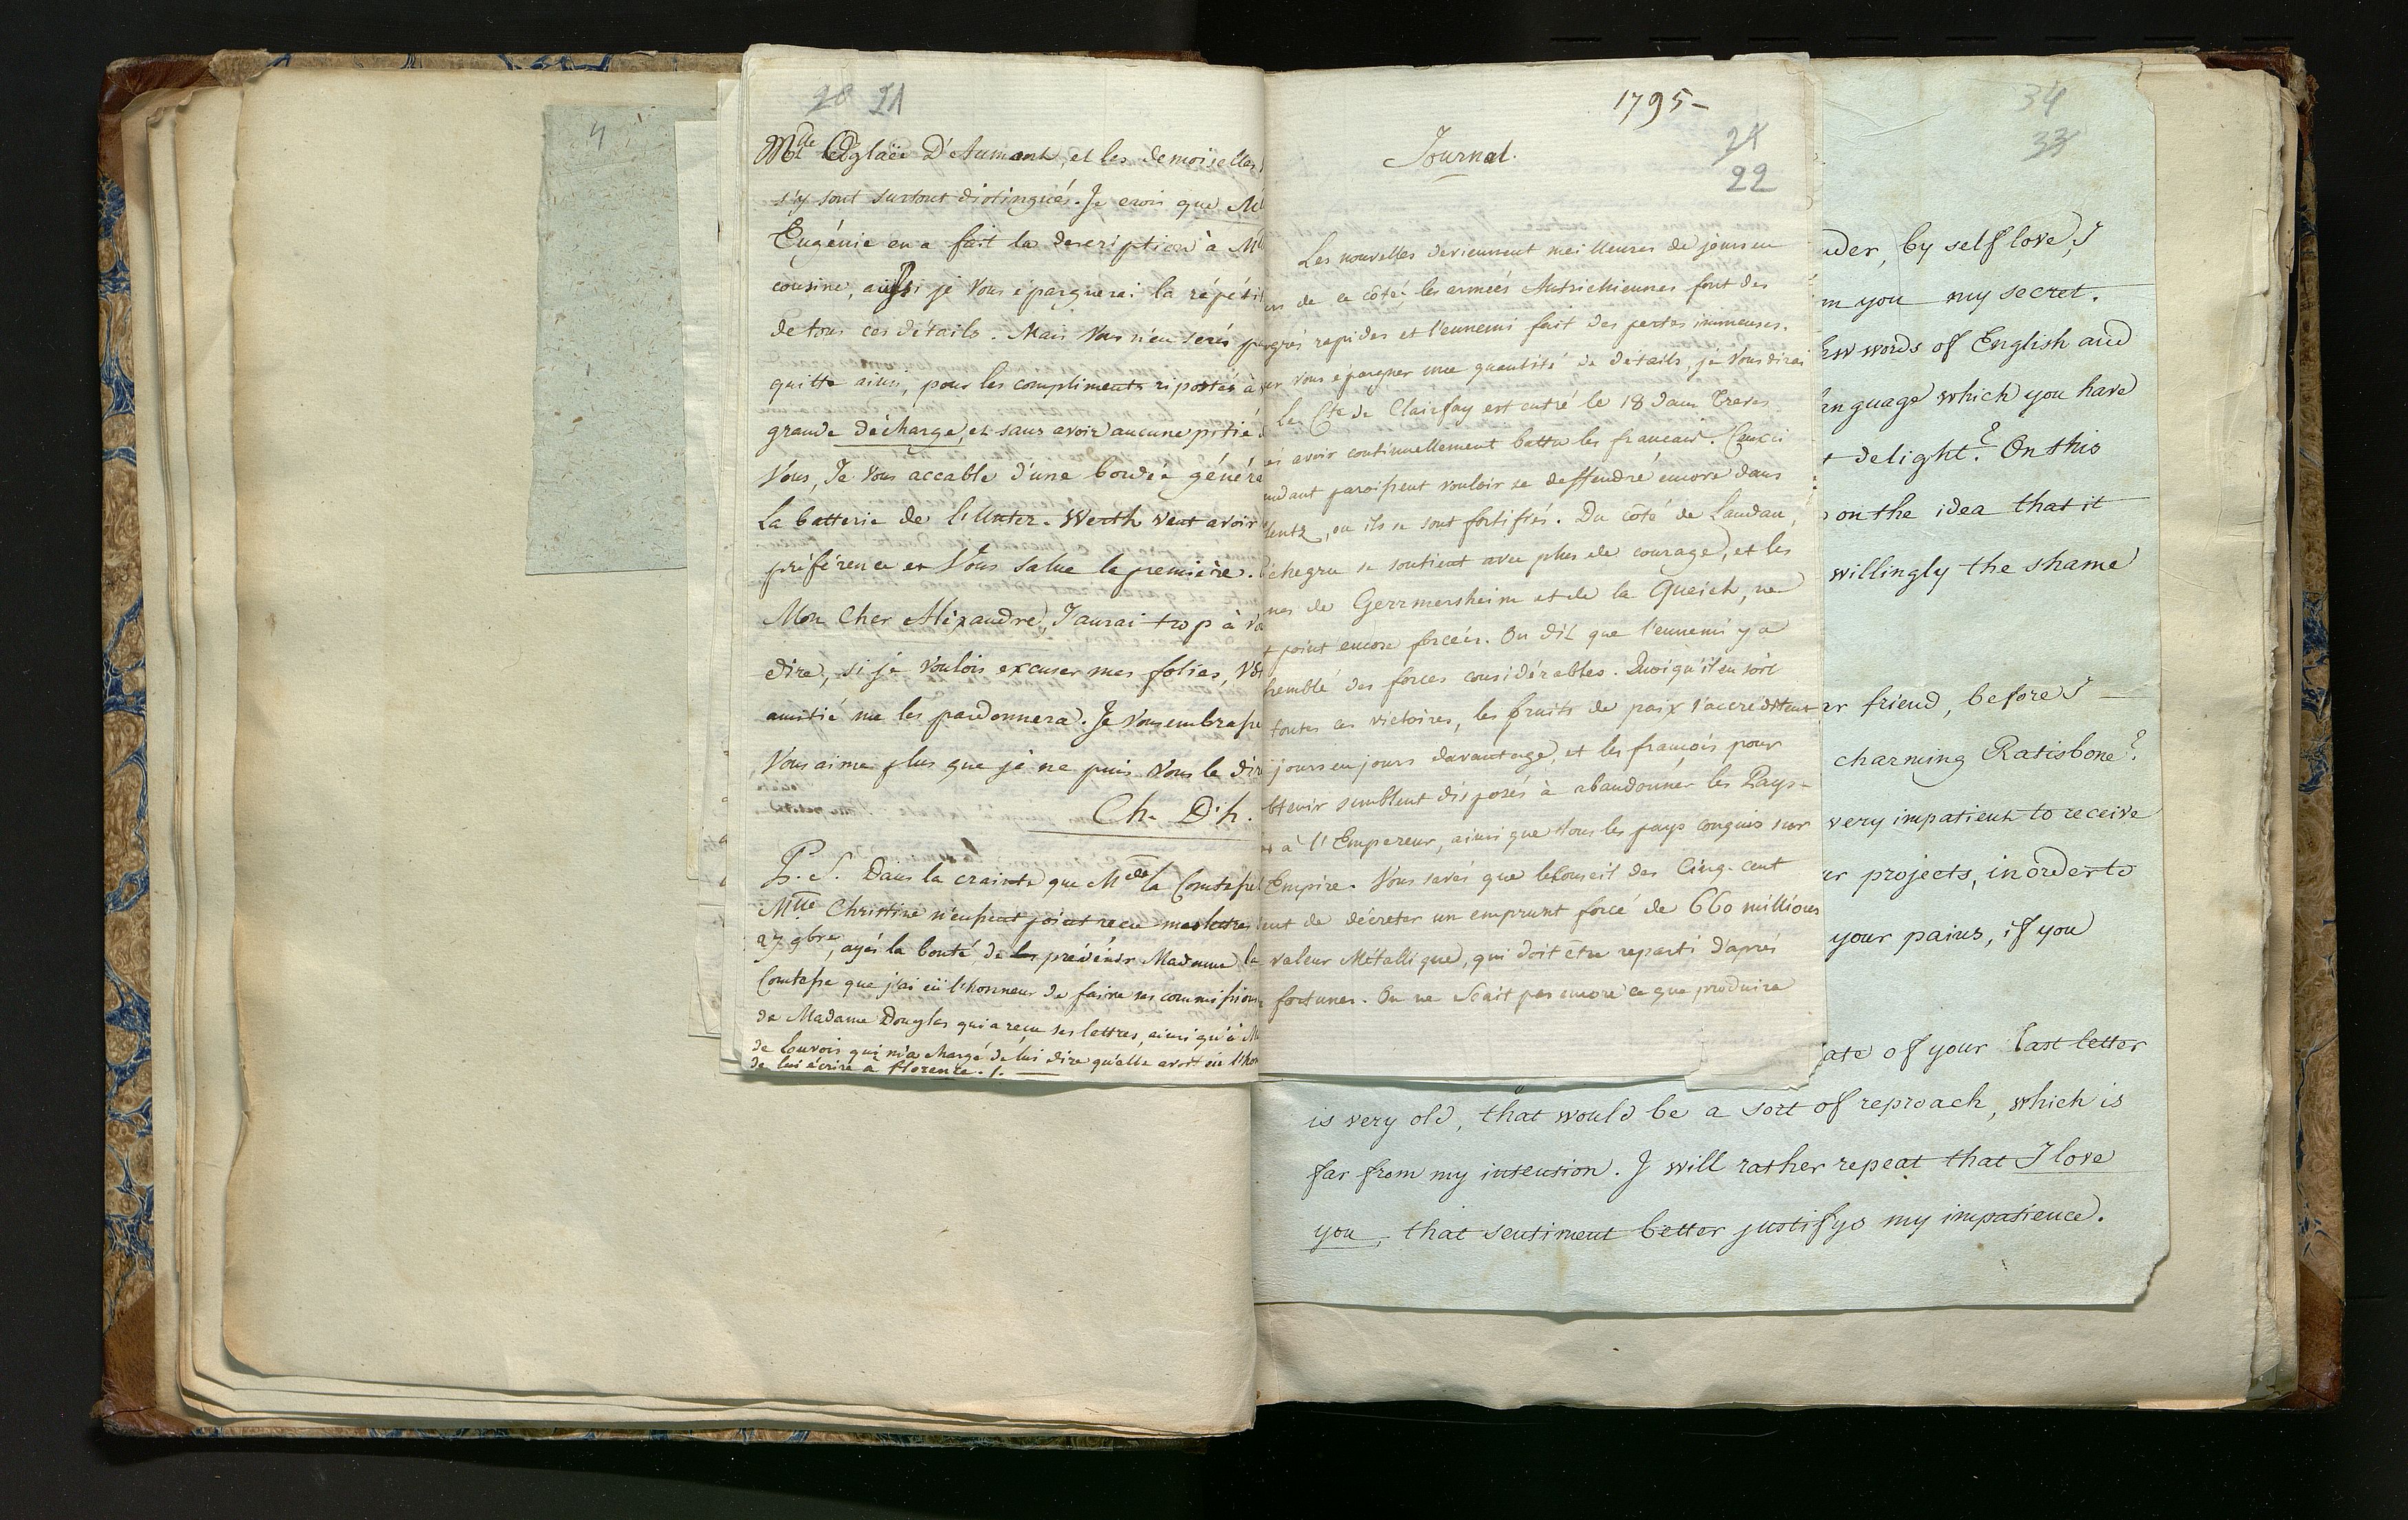 4
20 21
Mlle Aglaëe D'Aumont, et les demoiselles
s'y sont surtout distingués. Je crois que Ml
Eugénie en a fait la description à Ml
cousine, aussi je vous épargnerai la répéti
de tous ces détails. Mais vous n'en serés pa
quitte ainsi, pour les compliments ripostés à
grande décharge, et sans avoir aucune pitié d
Vous, Je vous accable d'une bordée généra
La batterie de l'Unter-Werth veut avoir
préférence et Vous salue la première.
Mon Cher Aléxandre, J'aurai trop à vo
dire, si je voulois excuser mes folies, Vo
amitié me les pardonnera. Je vous embrasse
Vous aime plus que je ne puis vous le dire
Ch. D'h.
P.S. Dans la crainte que Mde la Comtesse
Mlle Christine n'eussent point recu mes lettres
27 9bre, ayés la bonté de les prévénir Madame la
Comtesse que j'ai eü l'honneur de faire ses commissions
de Madame Douglas qui a reçu ses lettres, ainsi qu'à M
de Louvois qui m'a chargé de lui dire qu'elle avoit eü l'hon
de lui écrire a florence. /.
1795-
Journal.
21
22
Les nouvelles deviennent meilleures de jours en
urs de ce coté, les armées Autrichiennes font des
grès rapides et l'ennemi fait des pertes immenses.
ur vous épargner une quantité de détails, je vous dirai
Le Cte de Clairfay est entré le 18 dans Treves
ès avoir continuellement battu les francais. Ceux ci
endant paroissent vouloir se deffendre encore dans
lentz, ou ils se sont fortifiés. Du coté de Landau,
ichegru se soutient avec plus de courage, et les
nes de Gerrmersheim et de la Queich, ne
t point encore forcées. On dit que l'ennemi y a
semblé des forces considérables. Quoiqu'il en soit
toutes ces victoires, les bruits de paix s'accréditent
jours en jours davantage, et les françois pour
btenir semblent disposés à abandonner les Pays-
as à l'Empereur, ainsi que tous les pays conquis sur
Empire. Vous savés que le Conseil des Cinq-cent
ent de décreter un emprunt forcé de 660 millions
valeur Métallique, qui doit etre reparti d'après
fortunes. On ne scait pas encore ce que produira
34
33
nder, by self love, I
m you my secret.
ew words of English and
anguage which you have
t delight? On this
on the idea that it
willingly the shame
ar friend, before I
charming Ratisbone?
very impatient to receive
ur projects, in order to
your pains, if you
ate of your last letter
is very old, that would be a sort of reproach, which is
far from my intension. I will rather repeat that I love
you, that sentiment better justifys my impatience.